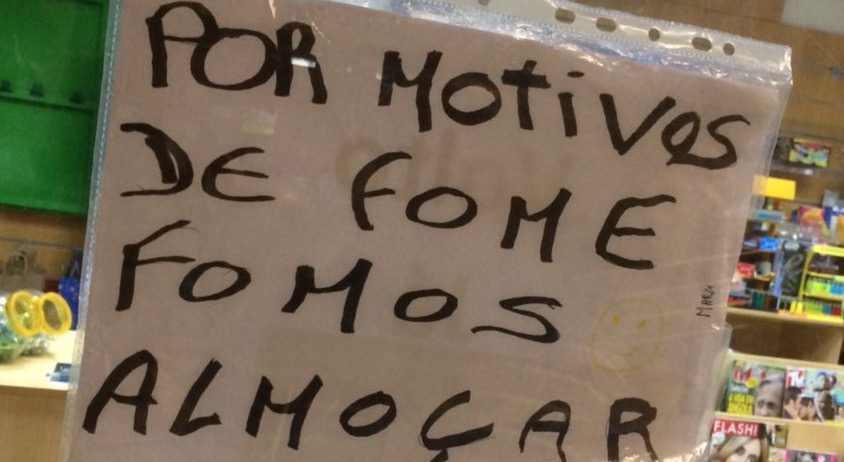 POR MOTIVOS
DE FOME
FOMOS
ALMOÇAR
FLASH!